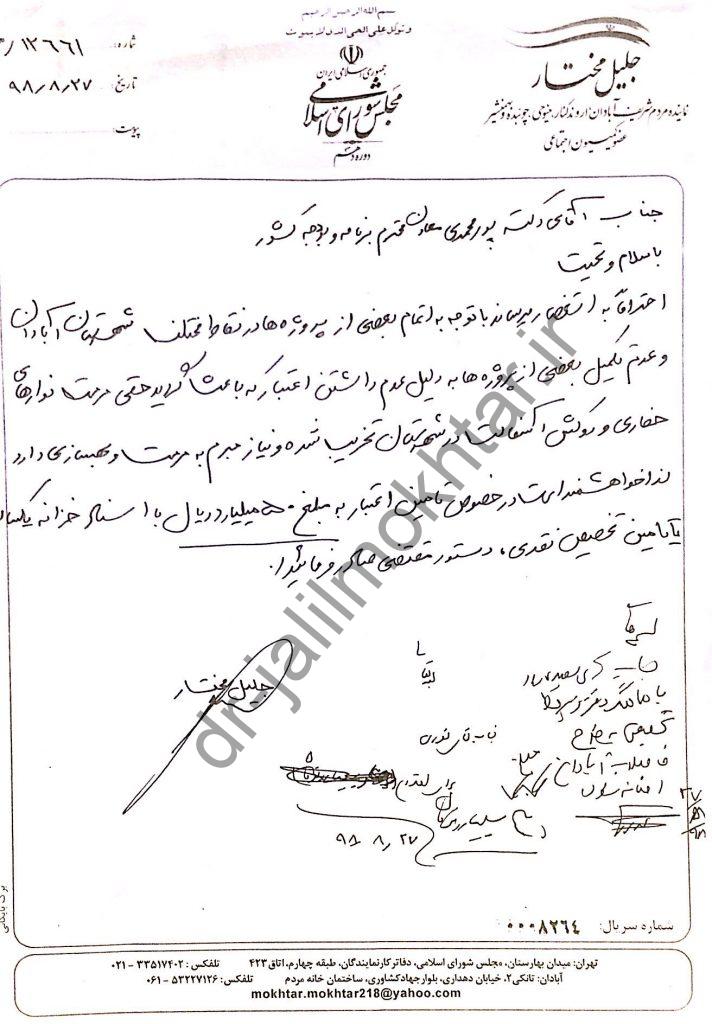 بسم الله الرحمن الرحیم
و توکل علی الحی الذی لا یموت
جمهوری اسلامی ایران
مجلس شورای اسلامی
دوره دهم
شماره: ۱۲۶۶۱/
تاریخ: ۹۸/۸/۲۷
پیوست:
جلیل مختار
نماینده مردم شریف آبادان، اروندکنار، مینوحی، چوئبده و بهمنشیر
عضو کمیسیون اجتماعی
جناب آقای دکتر پورمحمدی معاون محترم برنامه و بودجه کشور
با سلام و تحیت
احتراماً به استحضار می‌رساند با توجه به اتمام بعضی از پروژه ها در نقاط مختلف شهرستان آبادان
و عدم تکمیل بعضی از پروژه ها به دلیل عدم داشتن اعتبار که باعث گردید حتی مرمت نوارهای
حفاری و روکش آسفالت در شهرستان تخریب شده و نیاز مبرم به مرمت و بهسازی دارد
لذا خواهشمند است در خصوص تامین اعتبار به مبلغ ۵۰۰ میلیارد ریال با اسناد خزانه یکساله
یا تامین تخصیص نقدی، دستور مقتضی صادر فرمائید.
جلیل مختار
جناب آقای
با هماهنگی دفتر
فاضلاب آبادان
برای اقدام
۹۸/۸/۲۷
۲۷/۸/۹۸
شماره سریال: ۰۰۰۸۲۶۴
برگ بایگانی
تهران: میدان بهارستان، مجلس شورای اسلامی، دفاتر کار نمایندگان، طبقه چهارم، اتاق ۴۲۳ تلفکس: ۳۳۵۱۷۴۰۲ - ۰۲۱
آبادان: تانکی۲، خیابان دهداری، بلوار جهاد کشاورزی، ساختمان خانه مردم تلفکس: ۵۳۲۲۷۱۲۶ - ۰۶۱
mokhtar.mokhtar218@yahoo.com
dr-jalilmokhtar.ir